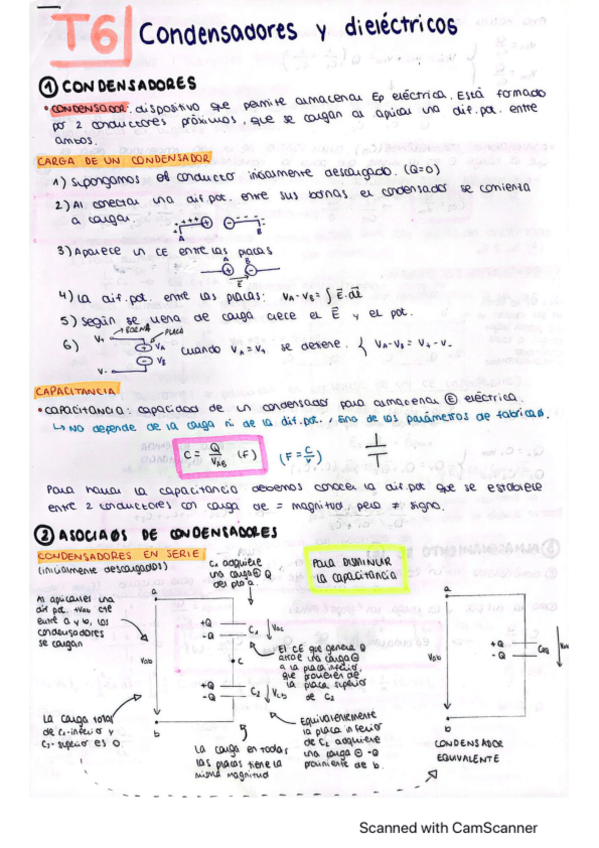 T6 Condensadores y dieléctricos
① CONDENSADORES
• CONDENSADOR: dispositivo que permite almacenar Ep eléctrica. Está formado
por 2 conductores próximos, que se cargan al aplicar una dif.pot. entre
ambos.
CARGA DE UN CONDENSADOR
1) Supongamos el conductor inicialmente descargado. (Q=0)
2) Al conectar una dif.pot. entre sus bornas el condensador se comienza
a cargar.
+ + + + - - -
A B
3) Aparece un CE entre las placas
A B
+ -
E
4) La dif.pot. entre las placas: VA - VB = ∫ E·dl
5) Según se llena de carga crece el E y el pot.
6) V+ → BORNA → PLACA
VA
VB
V-
cuando VA = V+ se detiene. { VA - VB = V+ - V-
CAPACITANCIA
• CAPACITANCIA: capacidad de un condensador para almacenar E eléctrica.
↳ No depende de la carga ni de la dif.pot., sino de los parámetros de fábrica.
C = Q/VAB (F) (F = C/V)
Para hallar la capacitancia debemos conocer la dif.pot que se establece
entre 2 conductores con carga de = magnitud, pero ≠ signo.
② ASOCIA⁰S DE CONDENSADORES
CONDENSADORES EN SERIE
(inicialmente descargados)
C1 adquiere
una carga ⊕ Q
del pto a.
PARA DISMINUIR
la capacitancia
Al aplicarles una
dif pot. +Vab cte
entre a y b, los
condensadores
se cargan
a
+Q
-Q
C1 Vac
c
Vab
+Q
-Q
C2 Vcb
b
El CE que genera Q
atrae una carga ⊖
a la placa inferior,
que proviene de
la placa superior
de C2
La carga total
de C1-inferior y
C2-superior es 0.
La carga en todas
las placas tiene la
misma magnitud
Equivalentemente
la placa inferior
de C2 adquiere
una carga ⊖ -Q
proviniente de b.
a
+Q
-Q
Ceq
Vab
b
CONDENSADOR
EQUIVALENTE
Scanned with CamScanner